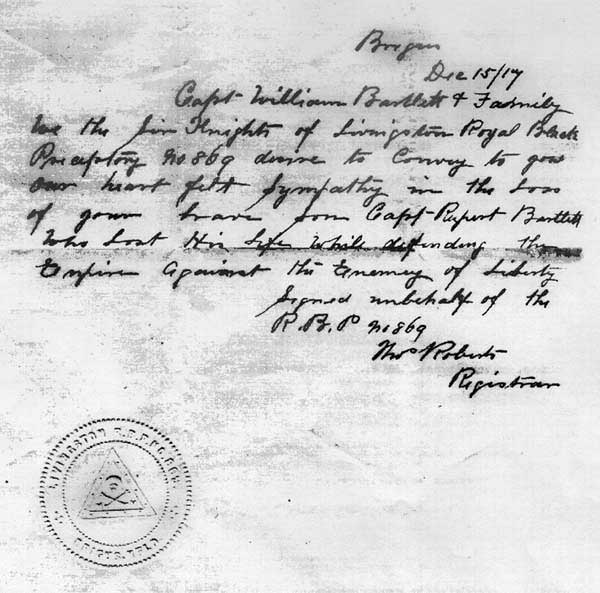 Brigus
Dec 15/17
Capt William Bartlett & Family
We the Sir Knights of Livingston Royal Black
Preceptory No 869 desire to Convey to you
our heart felt Sympathy in the Loss
of your brave son Capt Rupert Bartlett
Who Lost His Life While defending the
Empire Against the Enemy of Liberty
Signed unbehalf of the
R.B.P No 869
Thos Roberts
Registrar
LIVINGSTON R.B.P. NO. 869